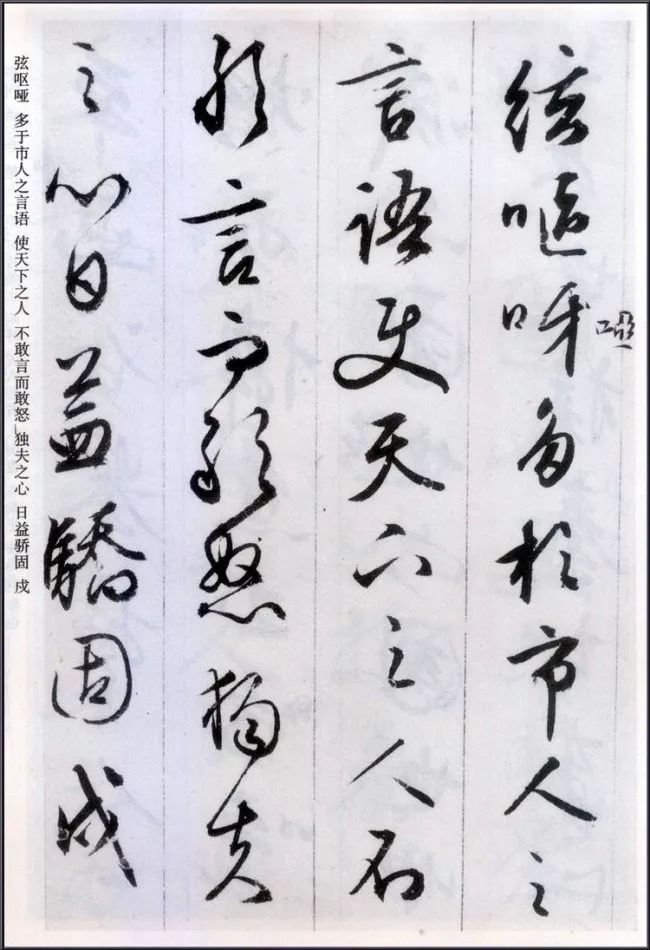 絃嘔呀多於市人之
啞
言語使天下之人不
敢言而敢怒獨夫
之心日益驕固戍
弦呕哑 多于市人之言语 使天下之人 不敢言而敢怒 独夫之心 日益骄固 戍